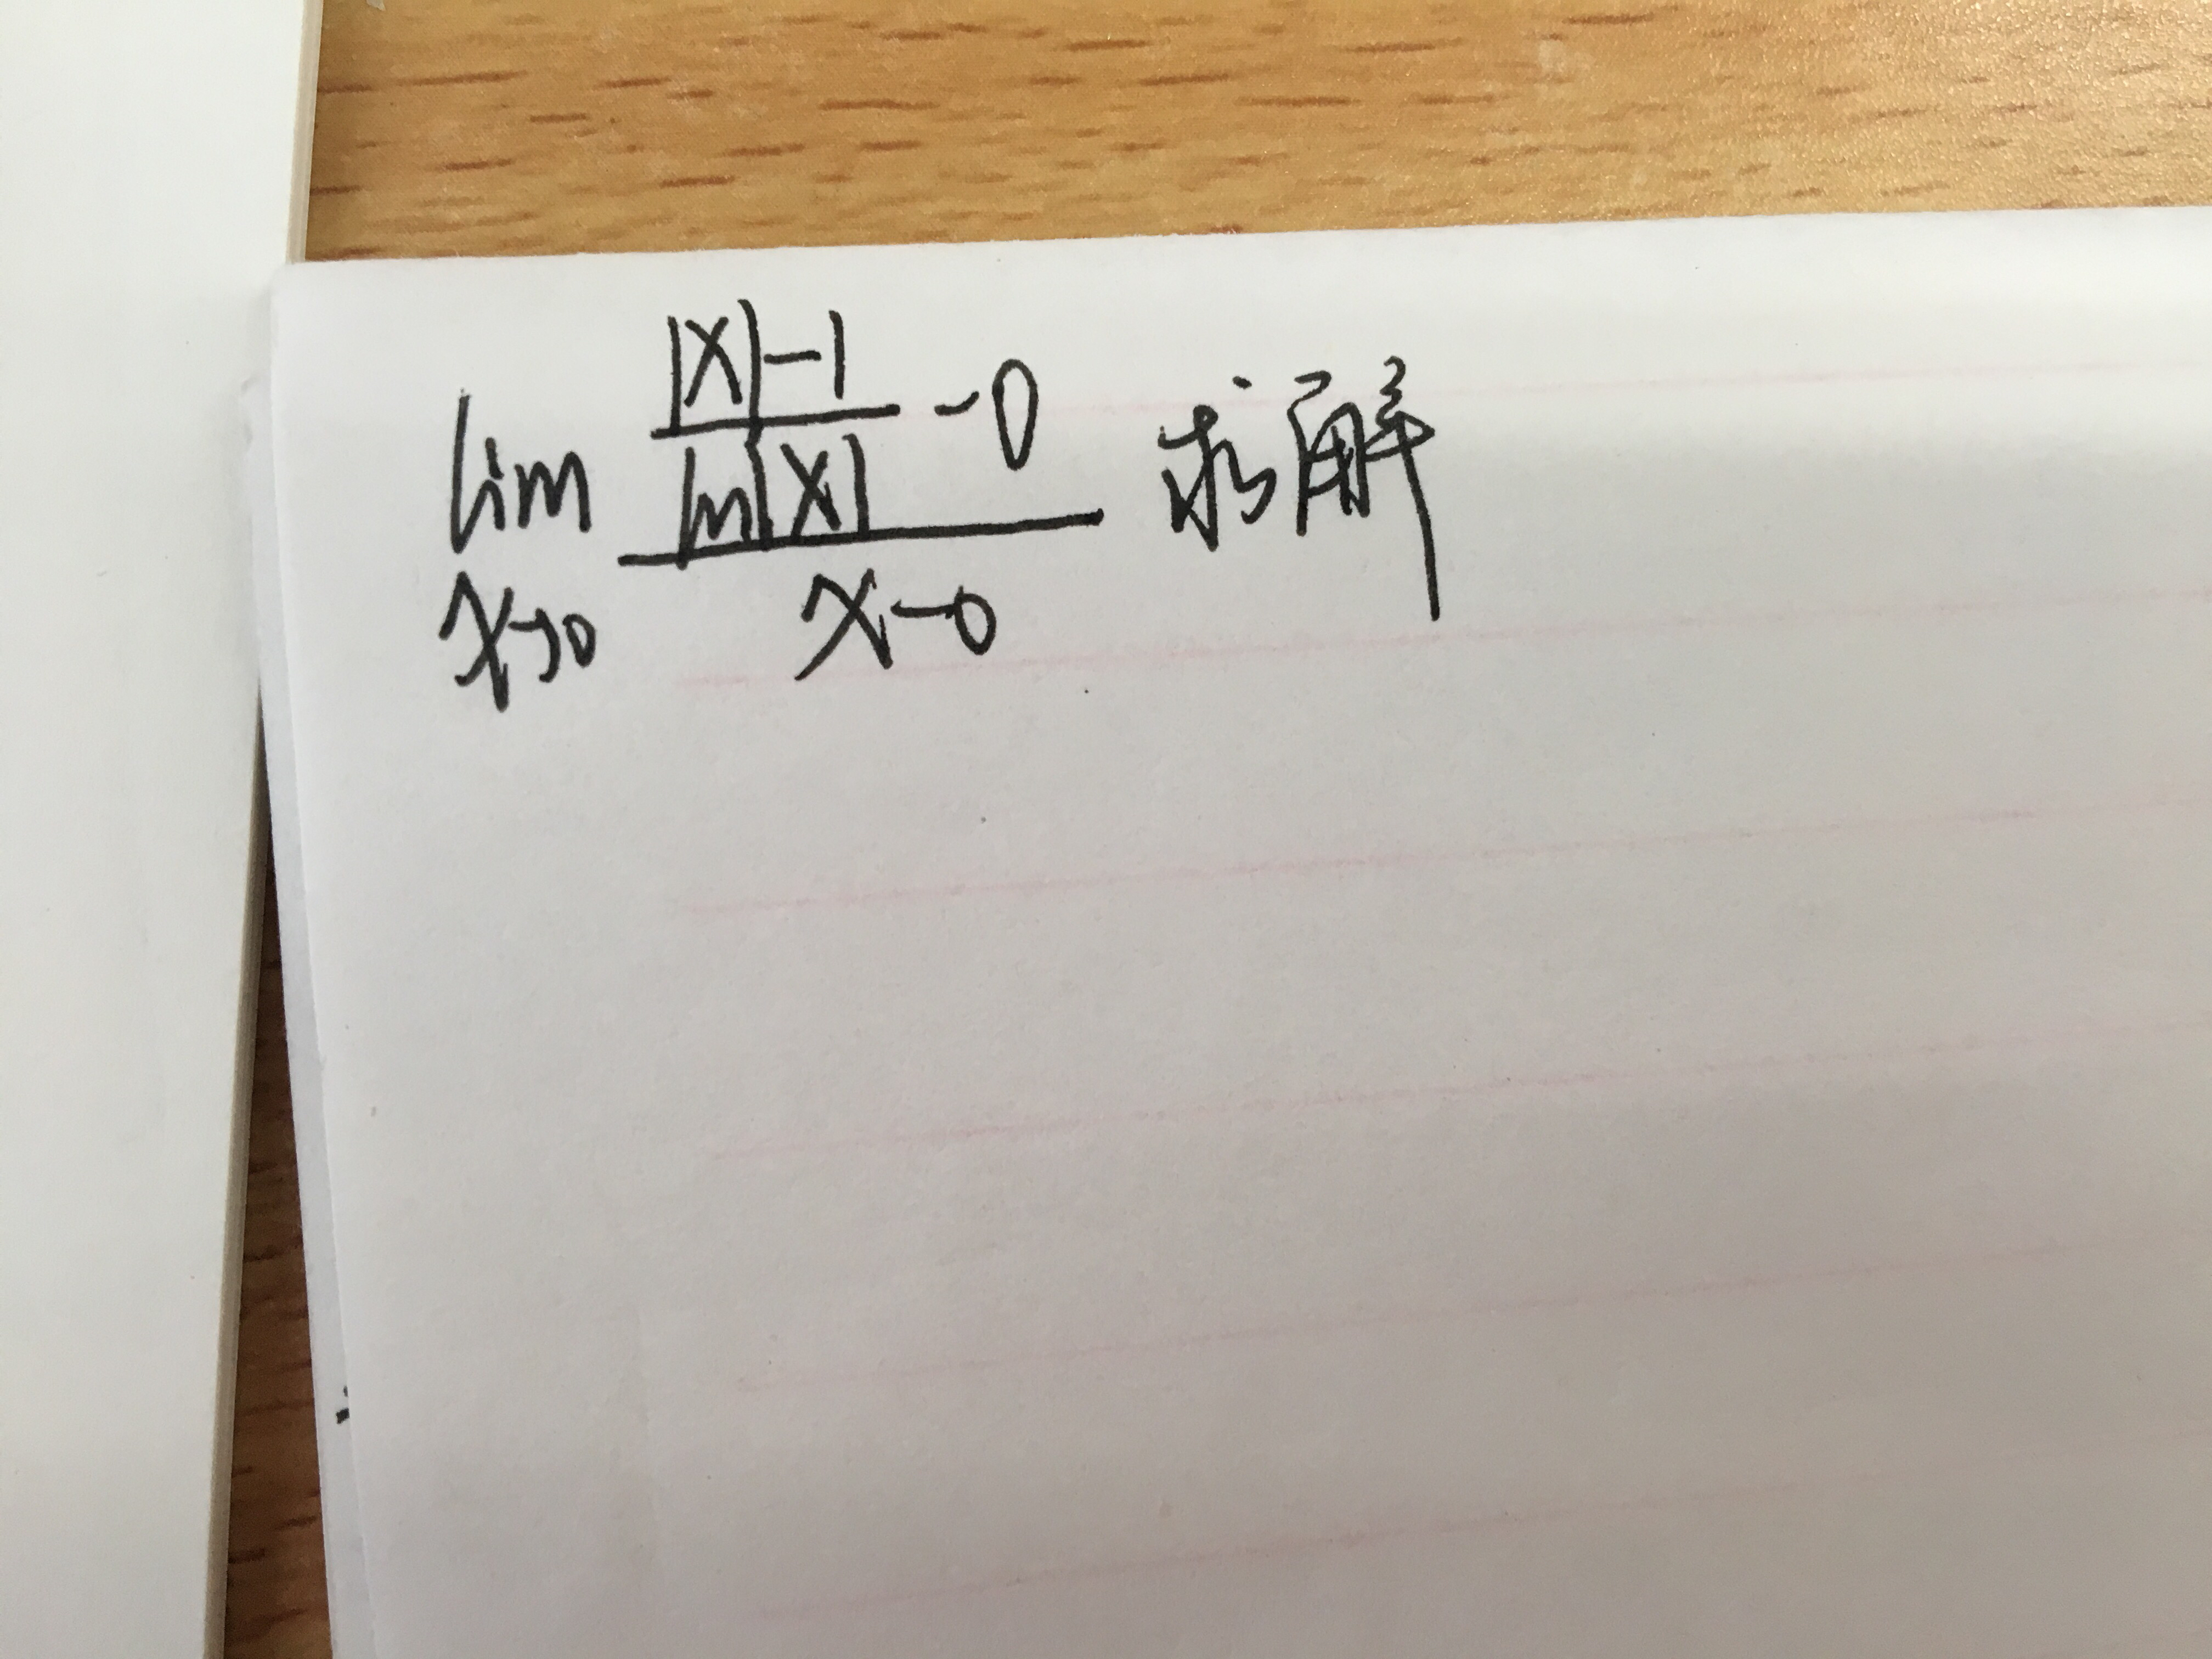 lim x→0 (|x|-1)/(ln|x|) - 0 / x-0 求解